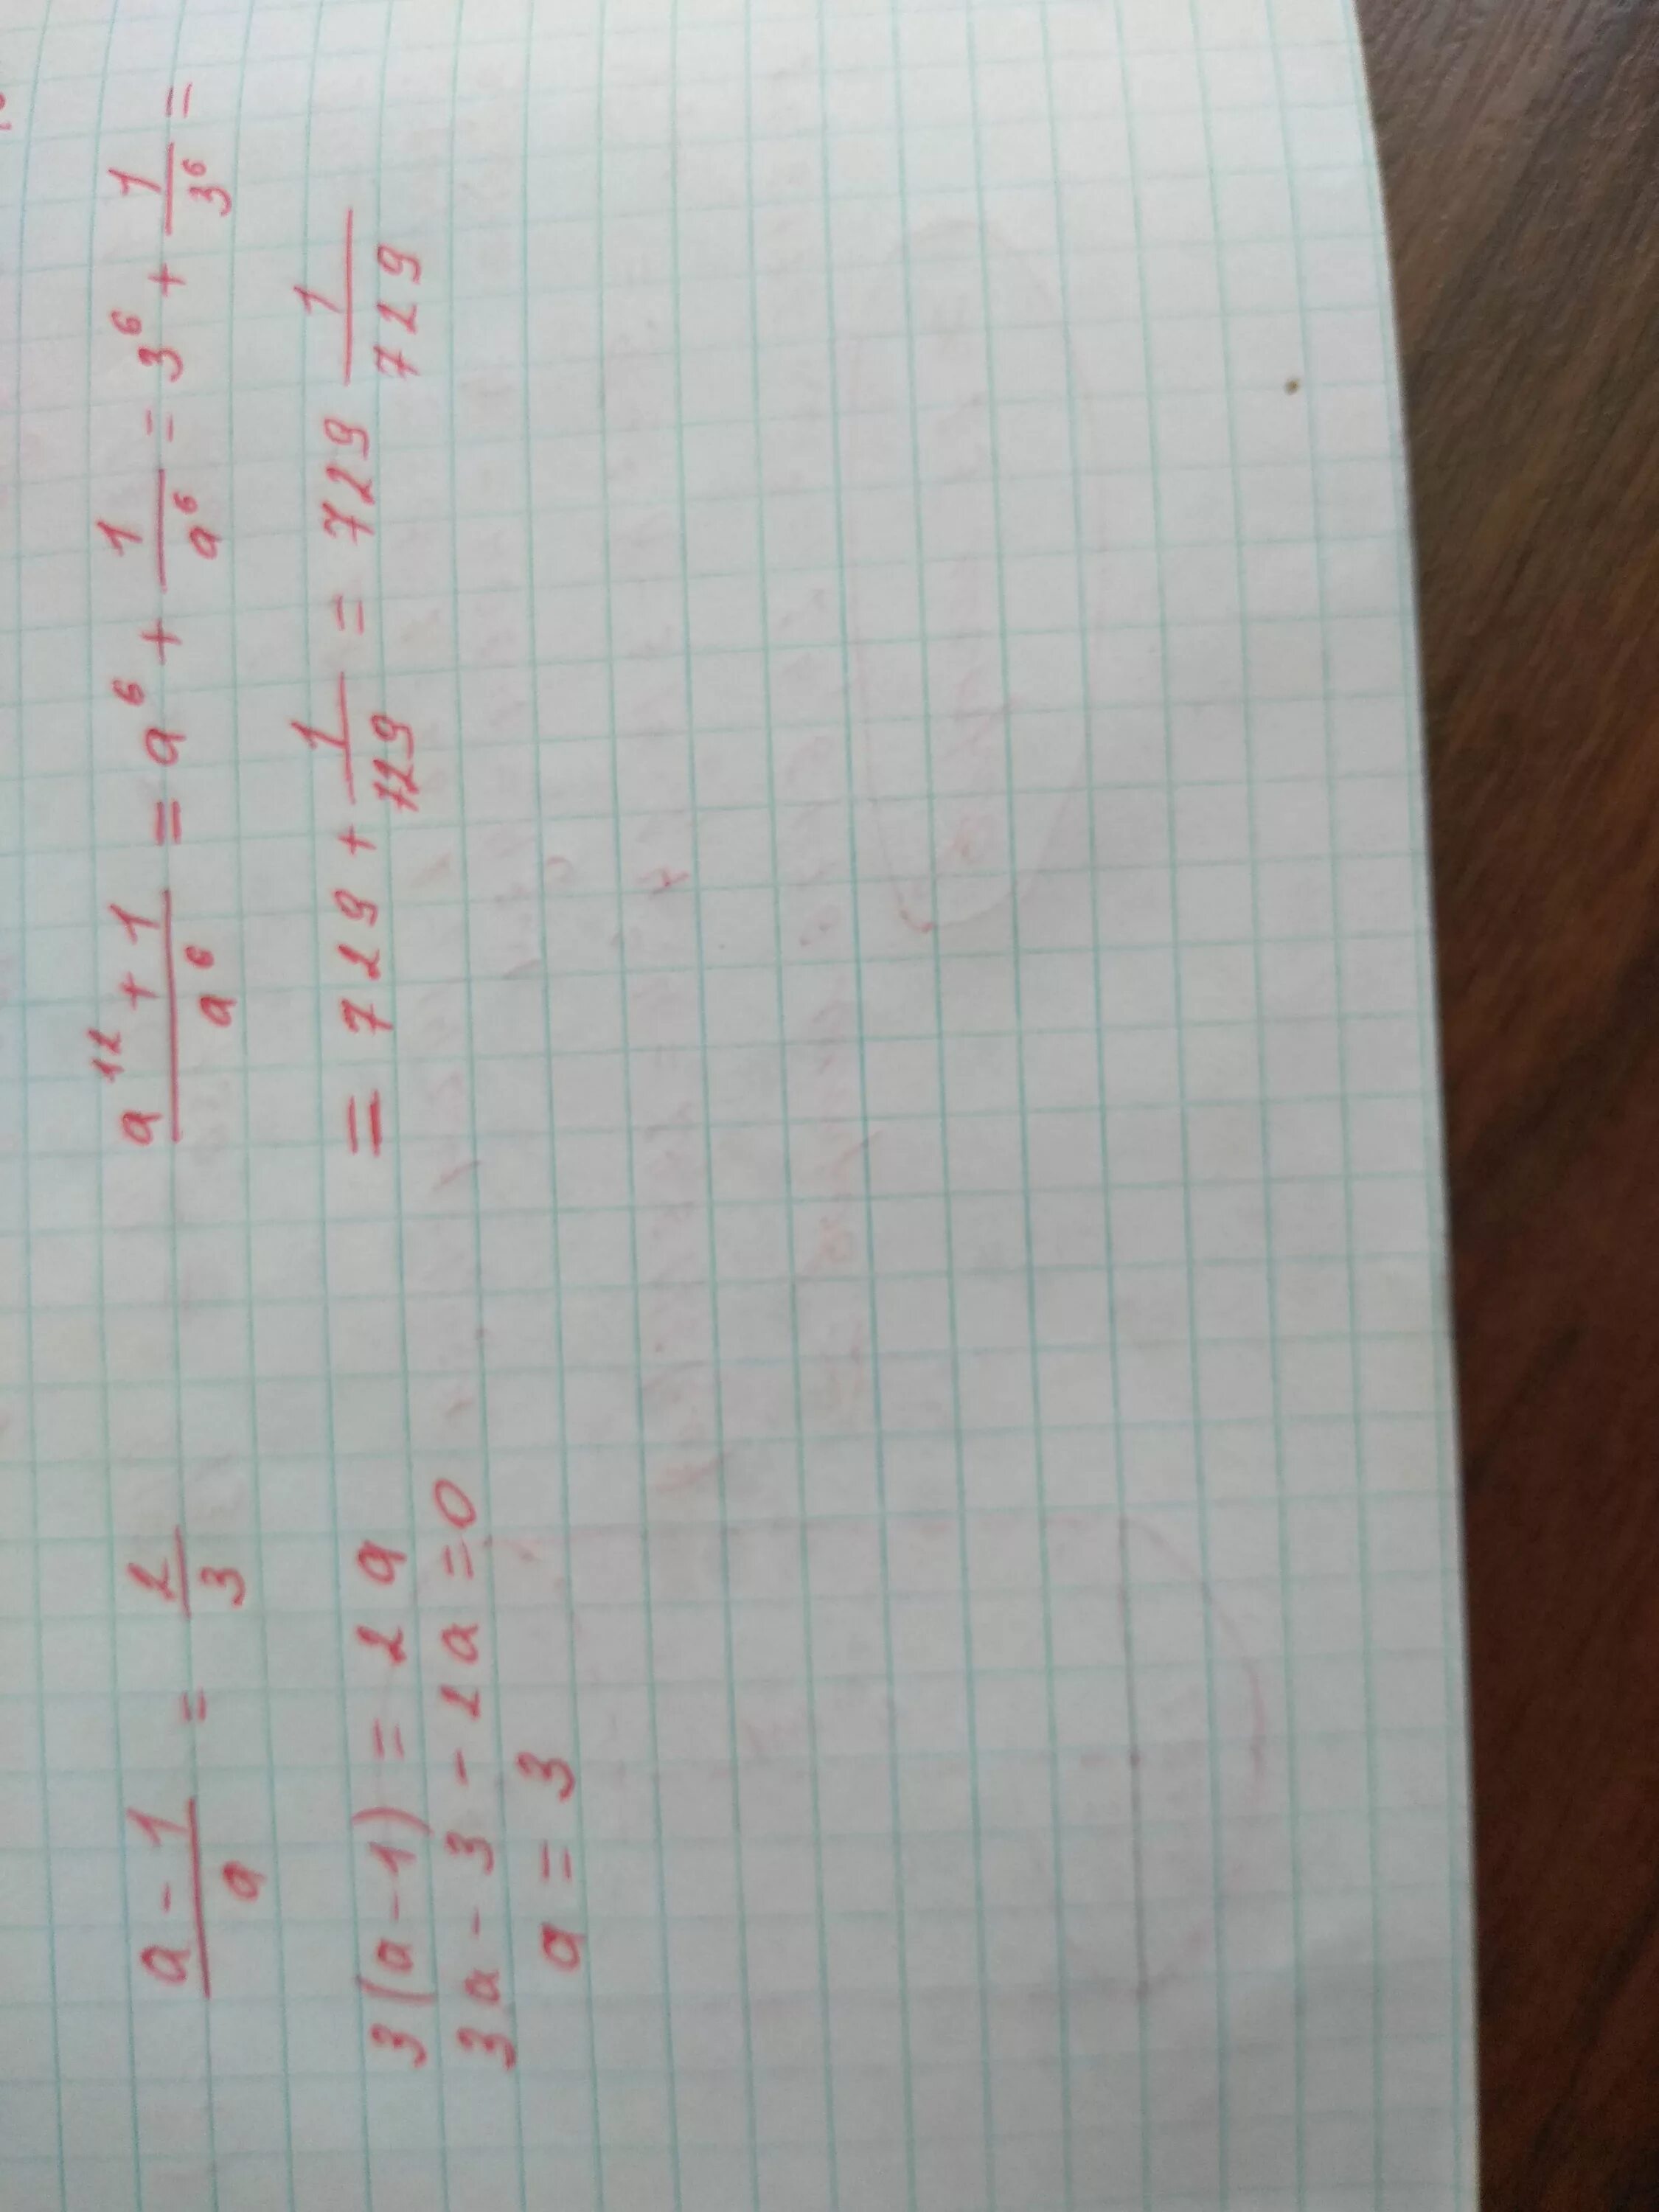 (a-1)/a = 2/3
3(a-1) = 2a
3a-3-2a=0
a=3
(a¹²+1)/a⁶ = a⁶ + 1/a⁶ = 3⁶ + 1/3⁶ =
= 729 + 1/729 = 729 1/729